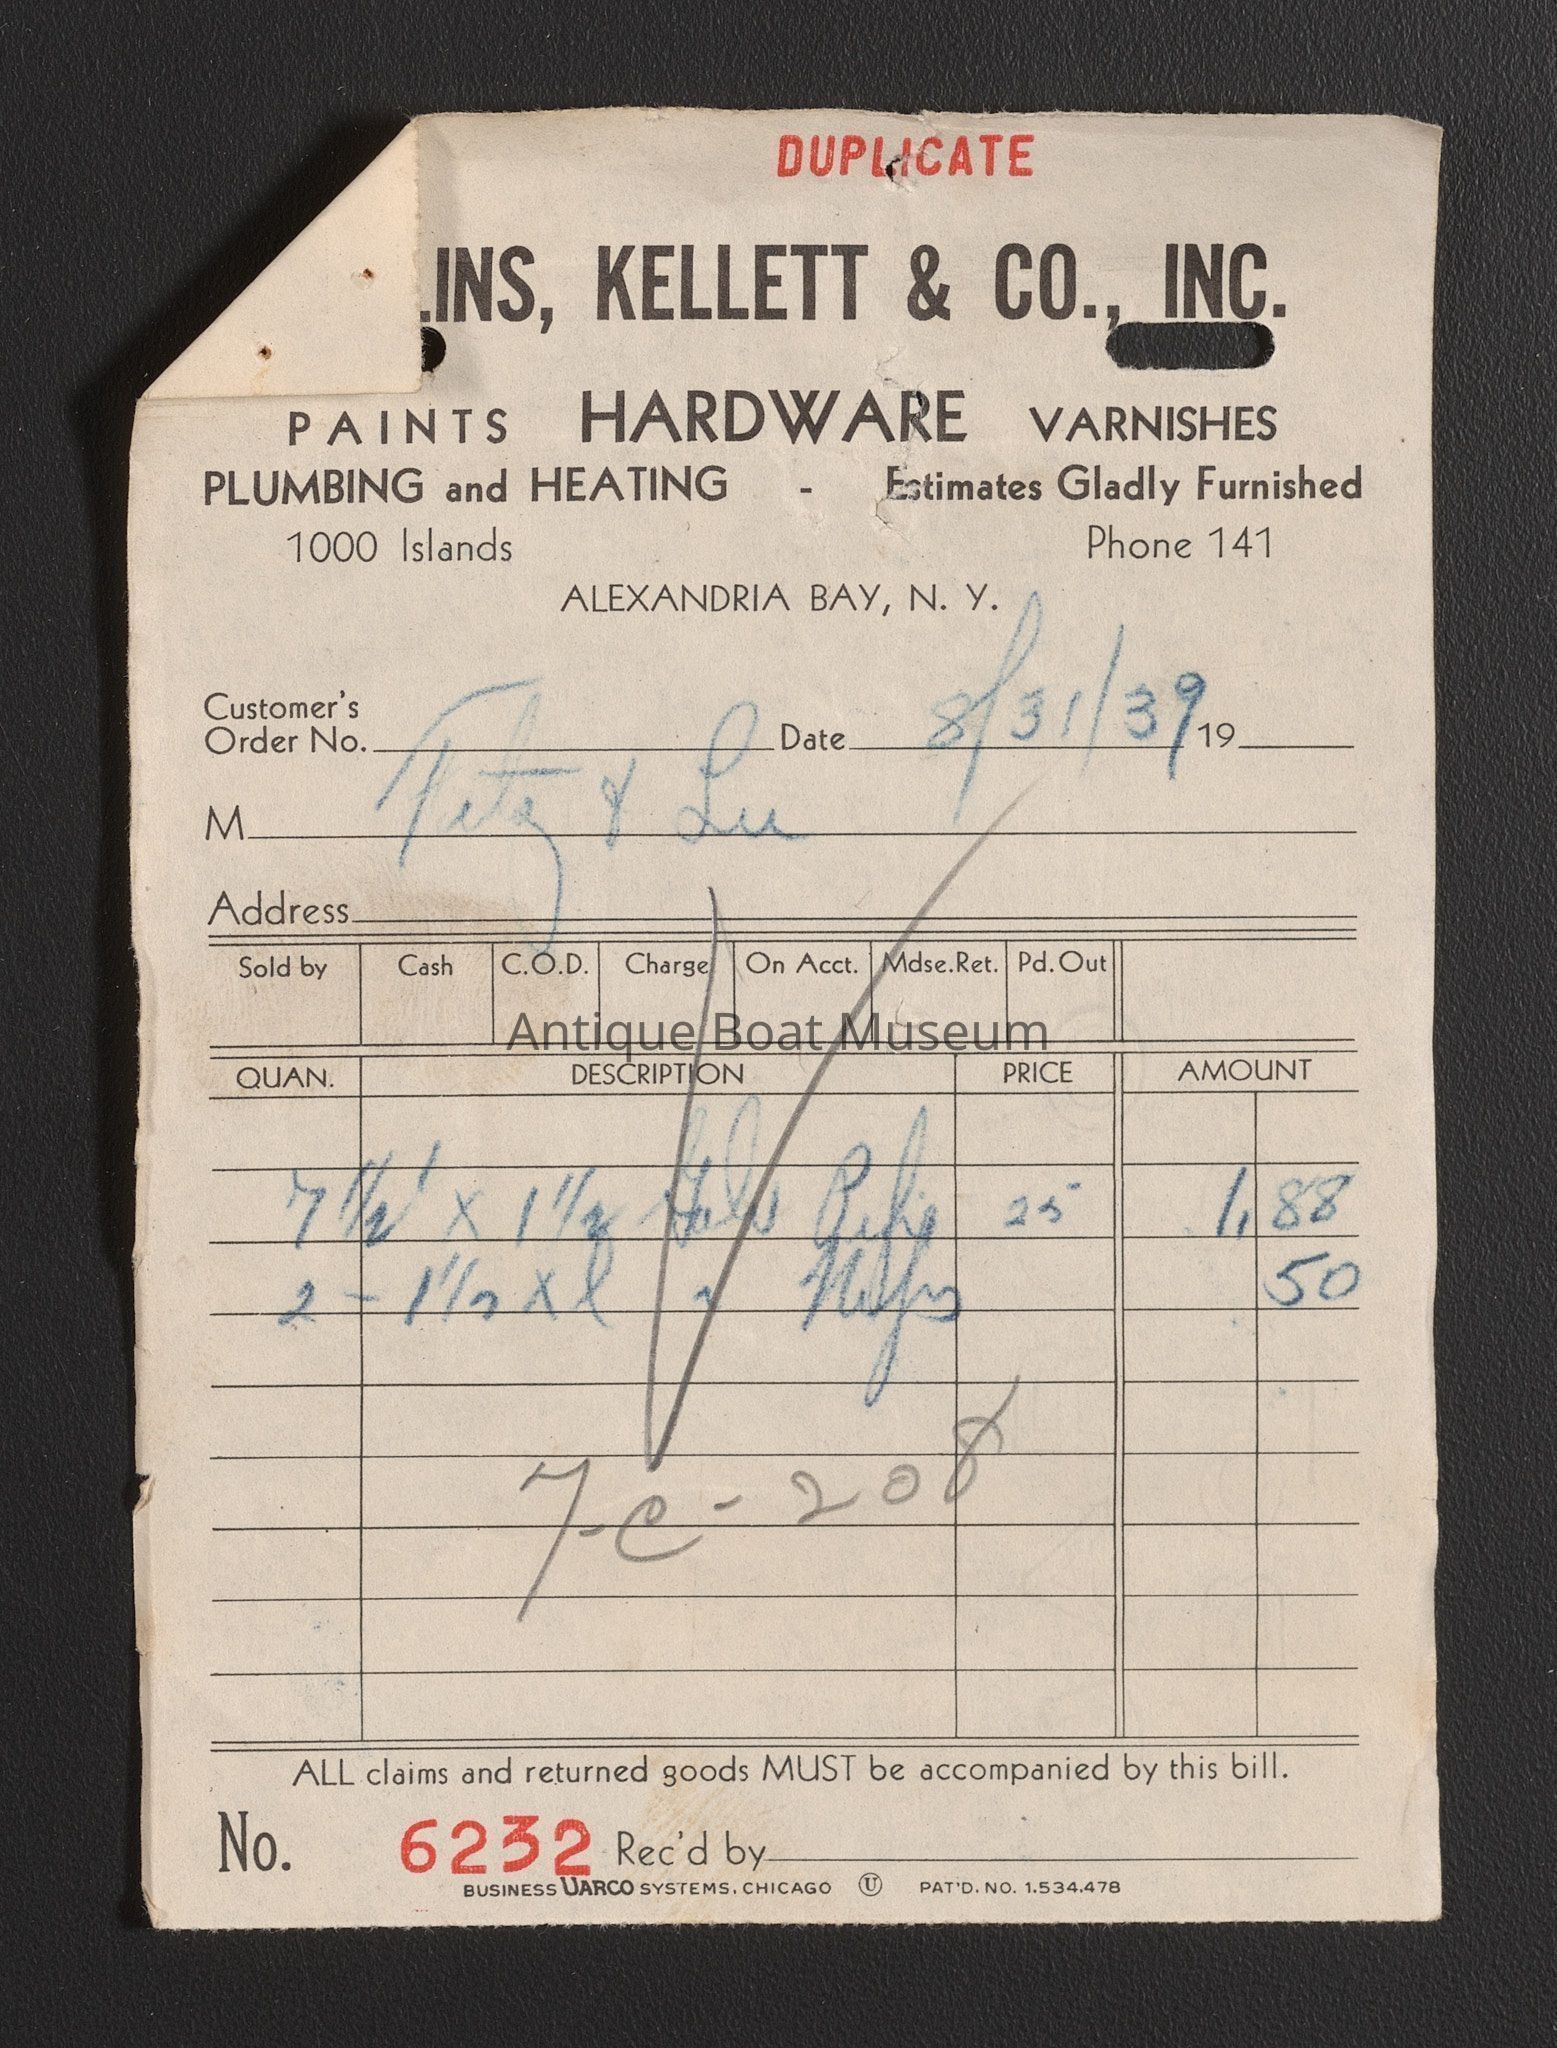 DUPLICATE
.INS, KELLETT & CO., INC.
PAINTS HARDWARE VARNISHES
PLUMBING and HEATING - Estimates Gladly Furnished
1000 Islands Phone 141
ALEXANDRIA BAY, N. Y.
Customer's
Order No. Date 8/31/39 19
M Fitz & Lu
Address
Sold by Cash C.O.D. Charge On Acct. Mdse.Ret. Pd.Out
Antique Boat Museum
QUAN. DESCRIPTION PRICE AMOUNT
7 1/2' x 1 1/2 Galv Pipe 25 1.88
2 - 1 1/2 x 50
7-C-208
ALL claims and returned goods MUST be accompanied by this bill.
No. 6232 Rec'd by
BUSINESS UARCO SYSTEMS, CHICAGO U PAT'D. NO. 1.534.478